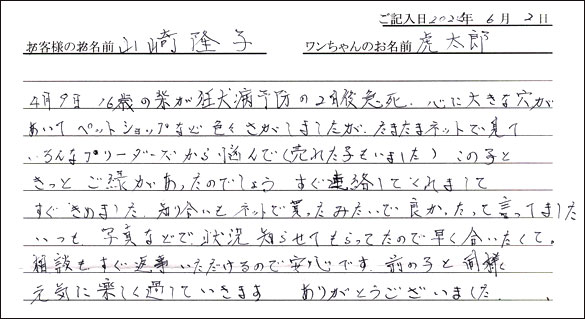 ご記入日2025年 6月 2日
お客様のお名前 山崎 隆子 ワンちゃんのお名前 虎太郎
4月9日 16歳の柴が狂犬病予防の2日後急死. 心に大きな穴が
あいて ペットショップなど色々さがしましたが、たまたまネットで見て
いろんなブリーダーズから悩んで(売れた子もいました) この子と
きっと ご縁があったのでしょう すぐ連絡してくれまして
すぐきめました 知り合いも ネットで買ったみたいで良かったって言ってました
いつも 写真などで状況 知らせてもらってたので早く合いたくて。
相談もすぐ返事いただけるので安心です. 前の子と 同様
元気に楽しく過していきます ありがとうございました.